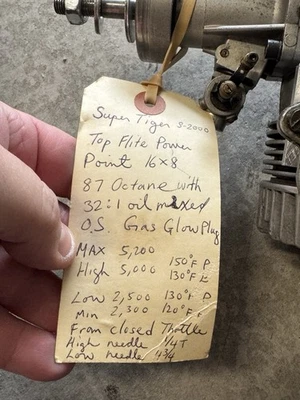 Super Tiger S-2000
Top Flite Power
Point 16x8
87 Octane with
32:1 oil mixed
O.S. Gas Glow Plug
MAX 5,200
High 5,000 150°F P
130°F E
Low 2,500 130°F P
Min 2,300 120°F
From closed Throttle
High needle 1/4T
Low needle 4 3/4